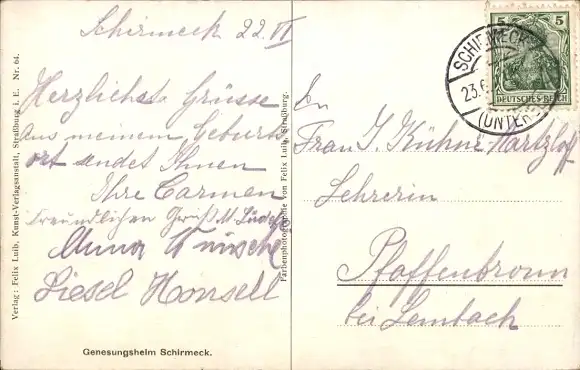 Schirmeck 22 VI
Herzlichste Grüsse
aus meinem Geburts
ort sendet Ihnen
Ihre Carmen
Freundlichen Gruß M. Lüdeke
Anna Wünsche
Liesel Honsell
Genesungsheim Schirmeck.
Verlag: Felix Luib, Kunst-Verlagsanstalt, Straßburg i. E. Nr. 64.
Farbenphotographie von Felix Luib, Straßburg.
5 5
DEUTSCHES REICH
SCHIRMECK
23.6
(UNTER
An
Frau J. Kühne-Hartzloff
Lehrerin
Pfaffenbronn
bei Lembach